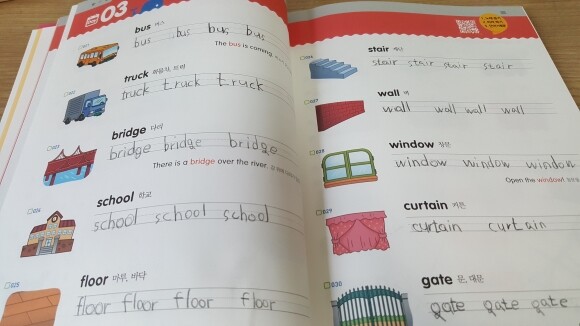 03
bus 버스
bus bus bus bus
The bus is coming.
truck 화물차, 트럭
truck truck truck
bridge 다리
bridge bridge bridge
There is a bridge over the river.
026
school 학교
school school school
025
floor 마루, 바닥
floor floor floor floor
stair 계단
stair stair stair stair
wall 벽
wall wall wall wall
028
window 창문
window window window
Open the window!
029
curtain 커튼
curtain curtain
030
gate 문, 대문
gate gate gate